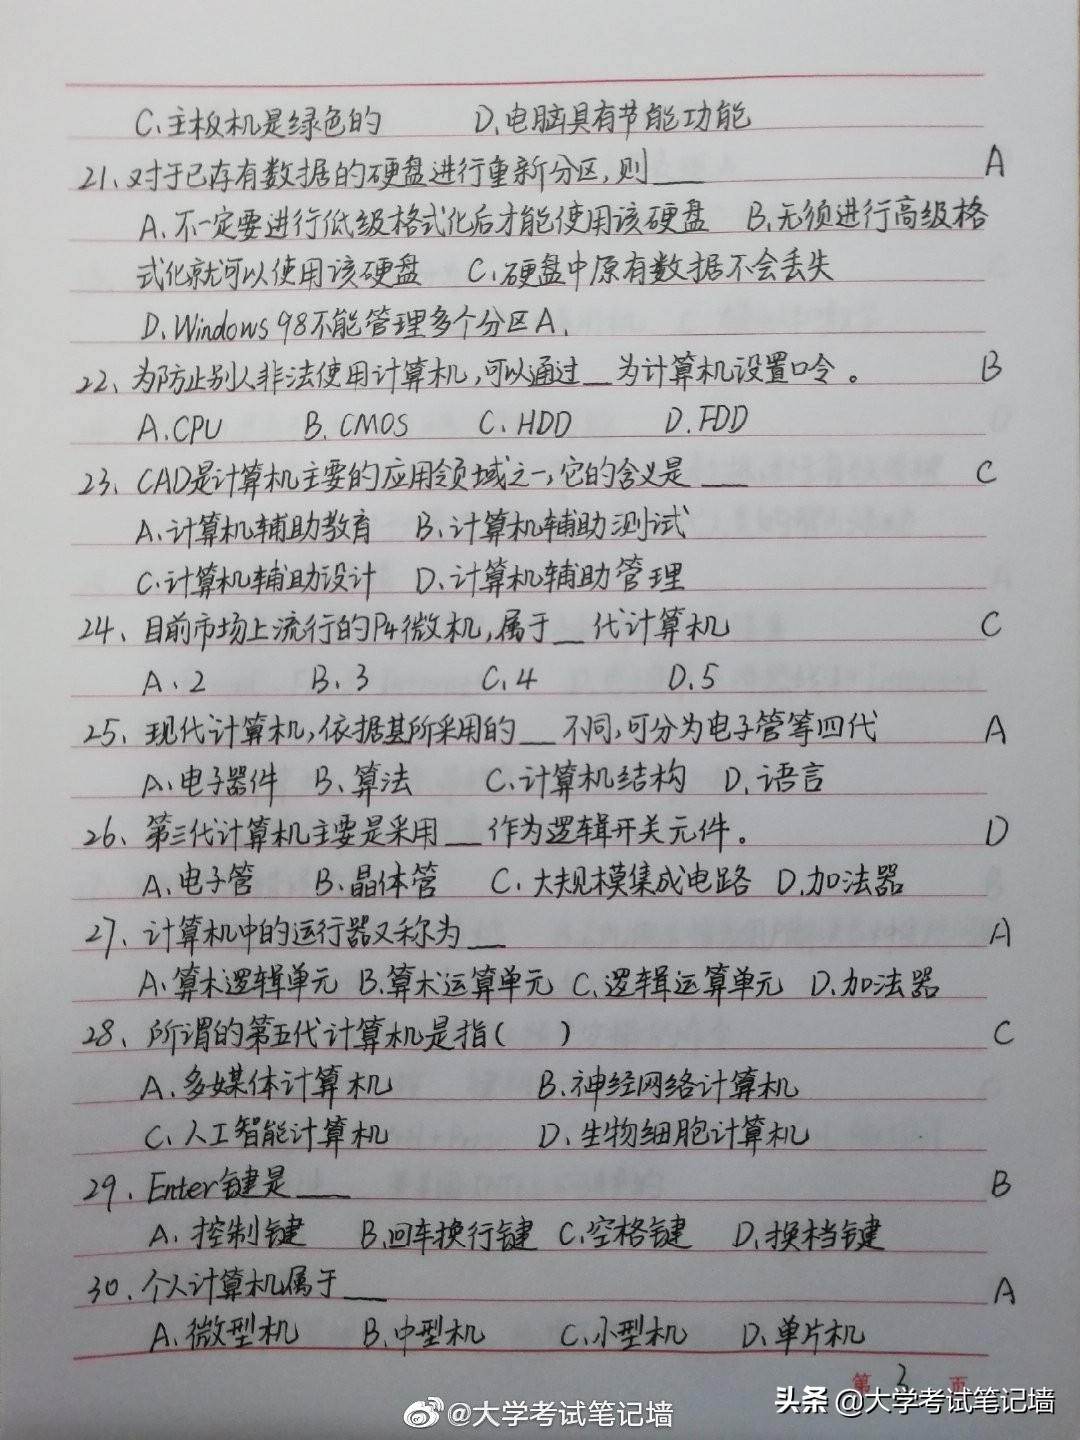 C、主板机是绿色的 D、电脑具有节能功能
21、对于已存有数据的硬盘进行重新分区,则___ A
A、不一定要进行低级格式化后才能使用该硬盘 B、无须进行高级格
式化就可以使用该硬盘 C、硬盘中原有数据不会丢失
D、Windows 98不能管理多个分区A、
22、为防止别人非法使用计算机,可以通过__为计算机设置口令。 B
A、CPU B、CMOS C、HDD D、FDD
23、CAD是计算机主要的应用领域之一,它的含义是___ C
A、计算机辅助教育 B、计算机辅助测试
C、计算机辅助设计 D、计算机辅助管理
24、目前市场上流行的P4微机,属于__代计算机 C
A、2 B、3 C、4 D、5
25、现代计算机,依据其所采用的__不同,可分为电子管等四代 A
A、电子器件 B、算法 C、计算机结构 D、语言
26、第三代计算机主要是采用__作为逻辑开关元件。 D
A、电子管 B、晶体管 C、大规模集成电路 D、加法器
27、计算机中的运行器又称为__ A
A、算术逻辑单元 B、算术运算单元 C、逻辑运算单元 D、加法器
28、所谓的第五代计算机是指( ) C
A、多媒体计算机 B、神经网络计算机
C、人工智能计算机 D、生物细胞计算机
29、Enter键是___ B
A、控制键 B、回车换行键 C、空格键 D、换档键
30、个人计算机属于__ A
A、微型机 B、中型机 C、小型机 D、单片机
第 3 页
@大学考试笔记墙
头条 @大学考试笔记墙